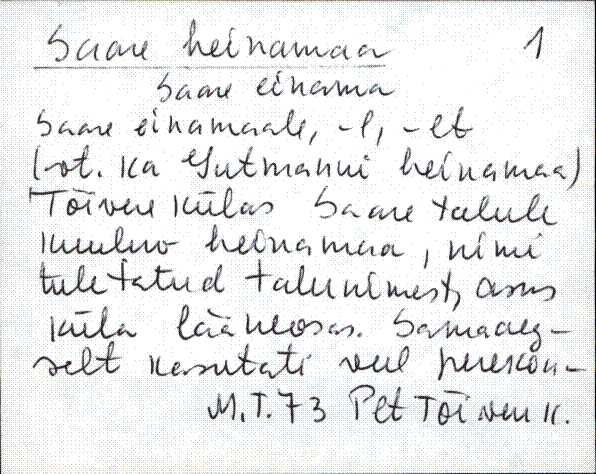 Saare heinamaa 1
Saare einama
Saare einamaale, -l, -lt
(vt. ka Gutmanni heinamaa)
Tõivere külas Saare talule
kuuluv heinamaa, nimi
tuletatud talunimest, asus
küla lääneosas. Samaaeg-
selt kasutati veel perekon-
M.T.73 Plt Tõivere k.